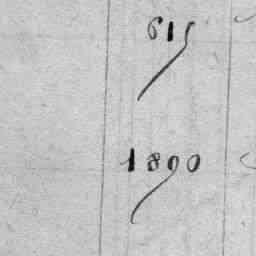 615
1890